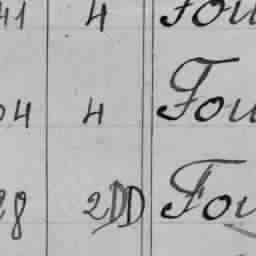 41 4 Fou
04 4 Fou
28 2DD Fou